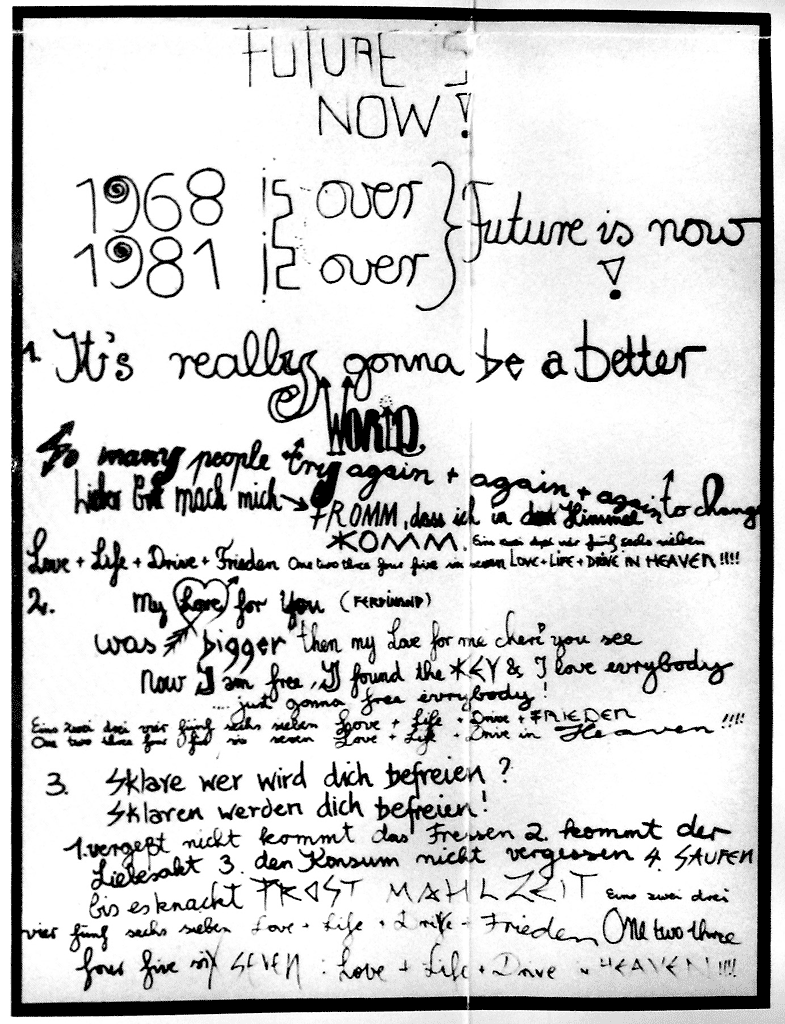 FUTURE IS
NOW!
1968 is over
1981 is over } Future is now!
1. It's really gonna be a better
WORLD.
So many people try again + again + again to change
Lieber Gott mach mich → FROMM, dass ich in den Himmel
KOMM. Ein zwei drei vier fünf sechs sieben
Love + Life + Drive + Frieden One two three four five six seven LOVE + LIFE + DRIVE IN HEAVEN!!!!
2. My Love for you (FERDINAND)
was bigger then my Love for me cheri you see
now I am free, I found the KEY & I love evrybody
... just gonna free evrybody!
Eins zwei drei vier fünf sechs sieben Love + Life + Drive + FRIEDEN
One two three four five six seven Love + Life + Drive in Heaven!!!!
3. Sklave wer wird dich befreien?
Sklaven werden dich befreien!
1. vergeßt nicht kommt das Fressen 2. kommt der
Liebesakt 3. den Konsum nicht vergessen 4. SAUFEN
bis es knackt PROST MAHLZEIT Eins zwei drei
vier fünf sechs sieben Love + Life + Drive + Frieden One two three
four five six SEVEN : Love + Life + Drive in HEAVEN!!!!